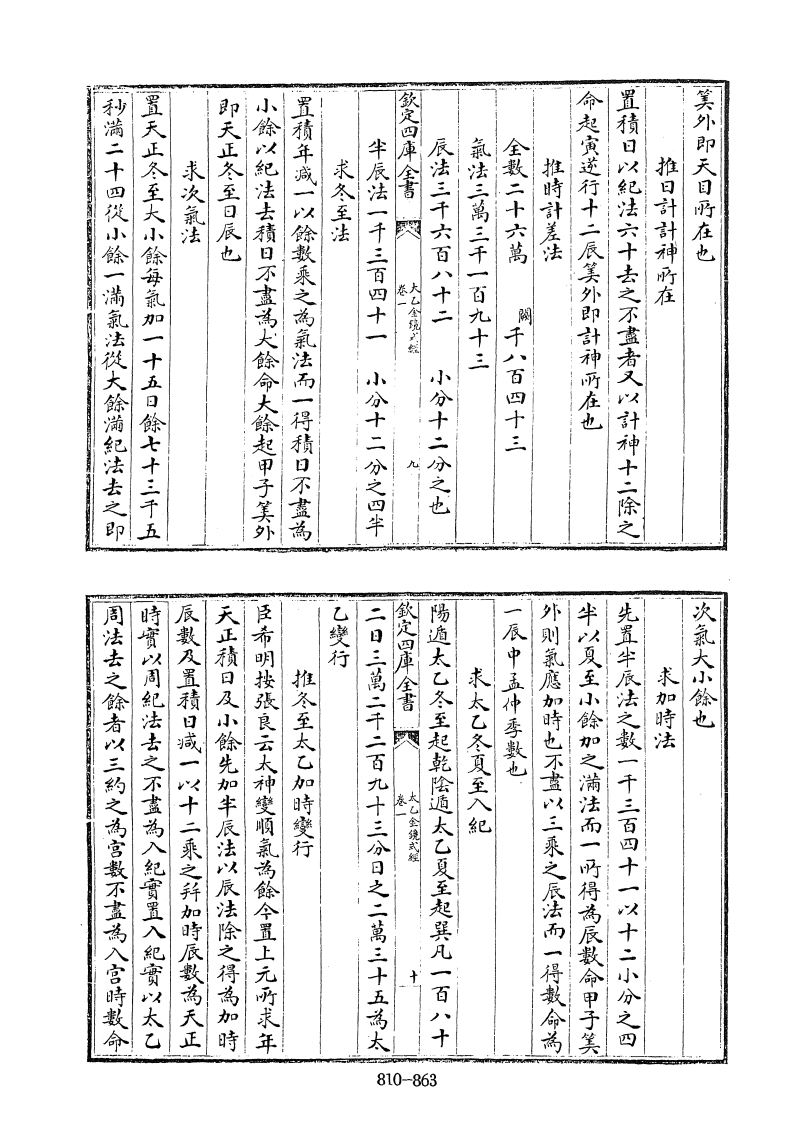 筭外即天目所在也
推日計計神所在
置積日以紀法六十去之不盡者又以計神十二除之
命起寅逆行十二辰筭外即計神所在也
推時計差法
全數二十六萬　闕　千八百四十三
氣法三萬三千一百九十三
辰法三千六百八十二　小分十二分之也
欽定四庫全書
太乙金鏡式經
卷一
九
半辰法一千三百四十一　小分十二分之四半
求冬至法
置積年减一以餘數乘之為氣法而一得積日不盡為
小餘以紀法去積日不盡為大餘命大餘起甲子筭外
即天正冬至日辰也
求次氣法
置天正冬至大小餘每氣加一十五日餘七十三千五
秒滿二十四從小餘一滿氣法從大餘滿紀法去之即
次氣大小餘也
求加時法
先置半辰法之數一千三百四十一以十二小分之四
半以夏至小餘加之滿法而一所得為辰數命甲子筭
外則氣應加時也不盡以三乘之辰法而一得數命為
一辰中孟仲季數也
求太乙冬夏至入紀
陽遁太乙冬至起乾陰遁太乙夏至起巽凡一百八十
欽定四庫全書
太乙金鏡式經
卷一
十
二日三萬二千二百九十三分日之二萬三十五為太
乙變行
推冬至太乙加時變行
臣希明按張良云太神變順氣為餘今置上元所求年
天正積日及小餘先加半辰法以辰法除之得為加時
辰數及置積日减一以十二乘之并加時辰數為天正
時實以周紀法去之不盡為入紀實置入紀實以太乙
周法去之餘者以三約之為宫數不盡為入宫時數命
810-863